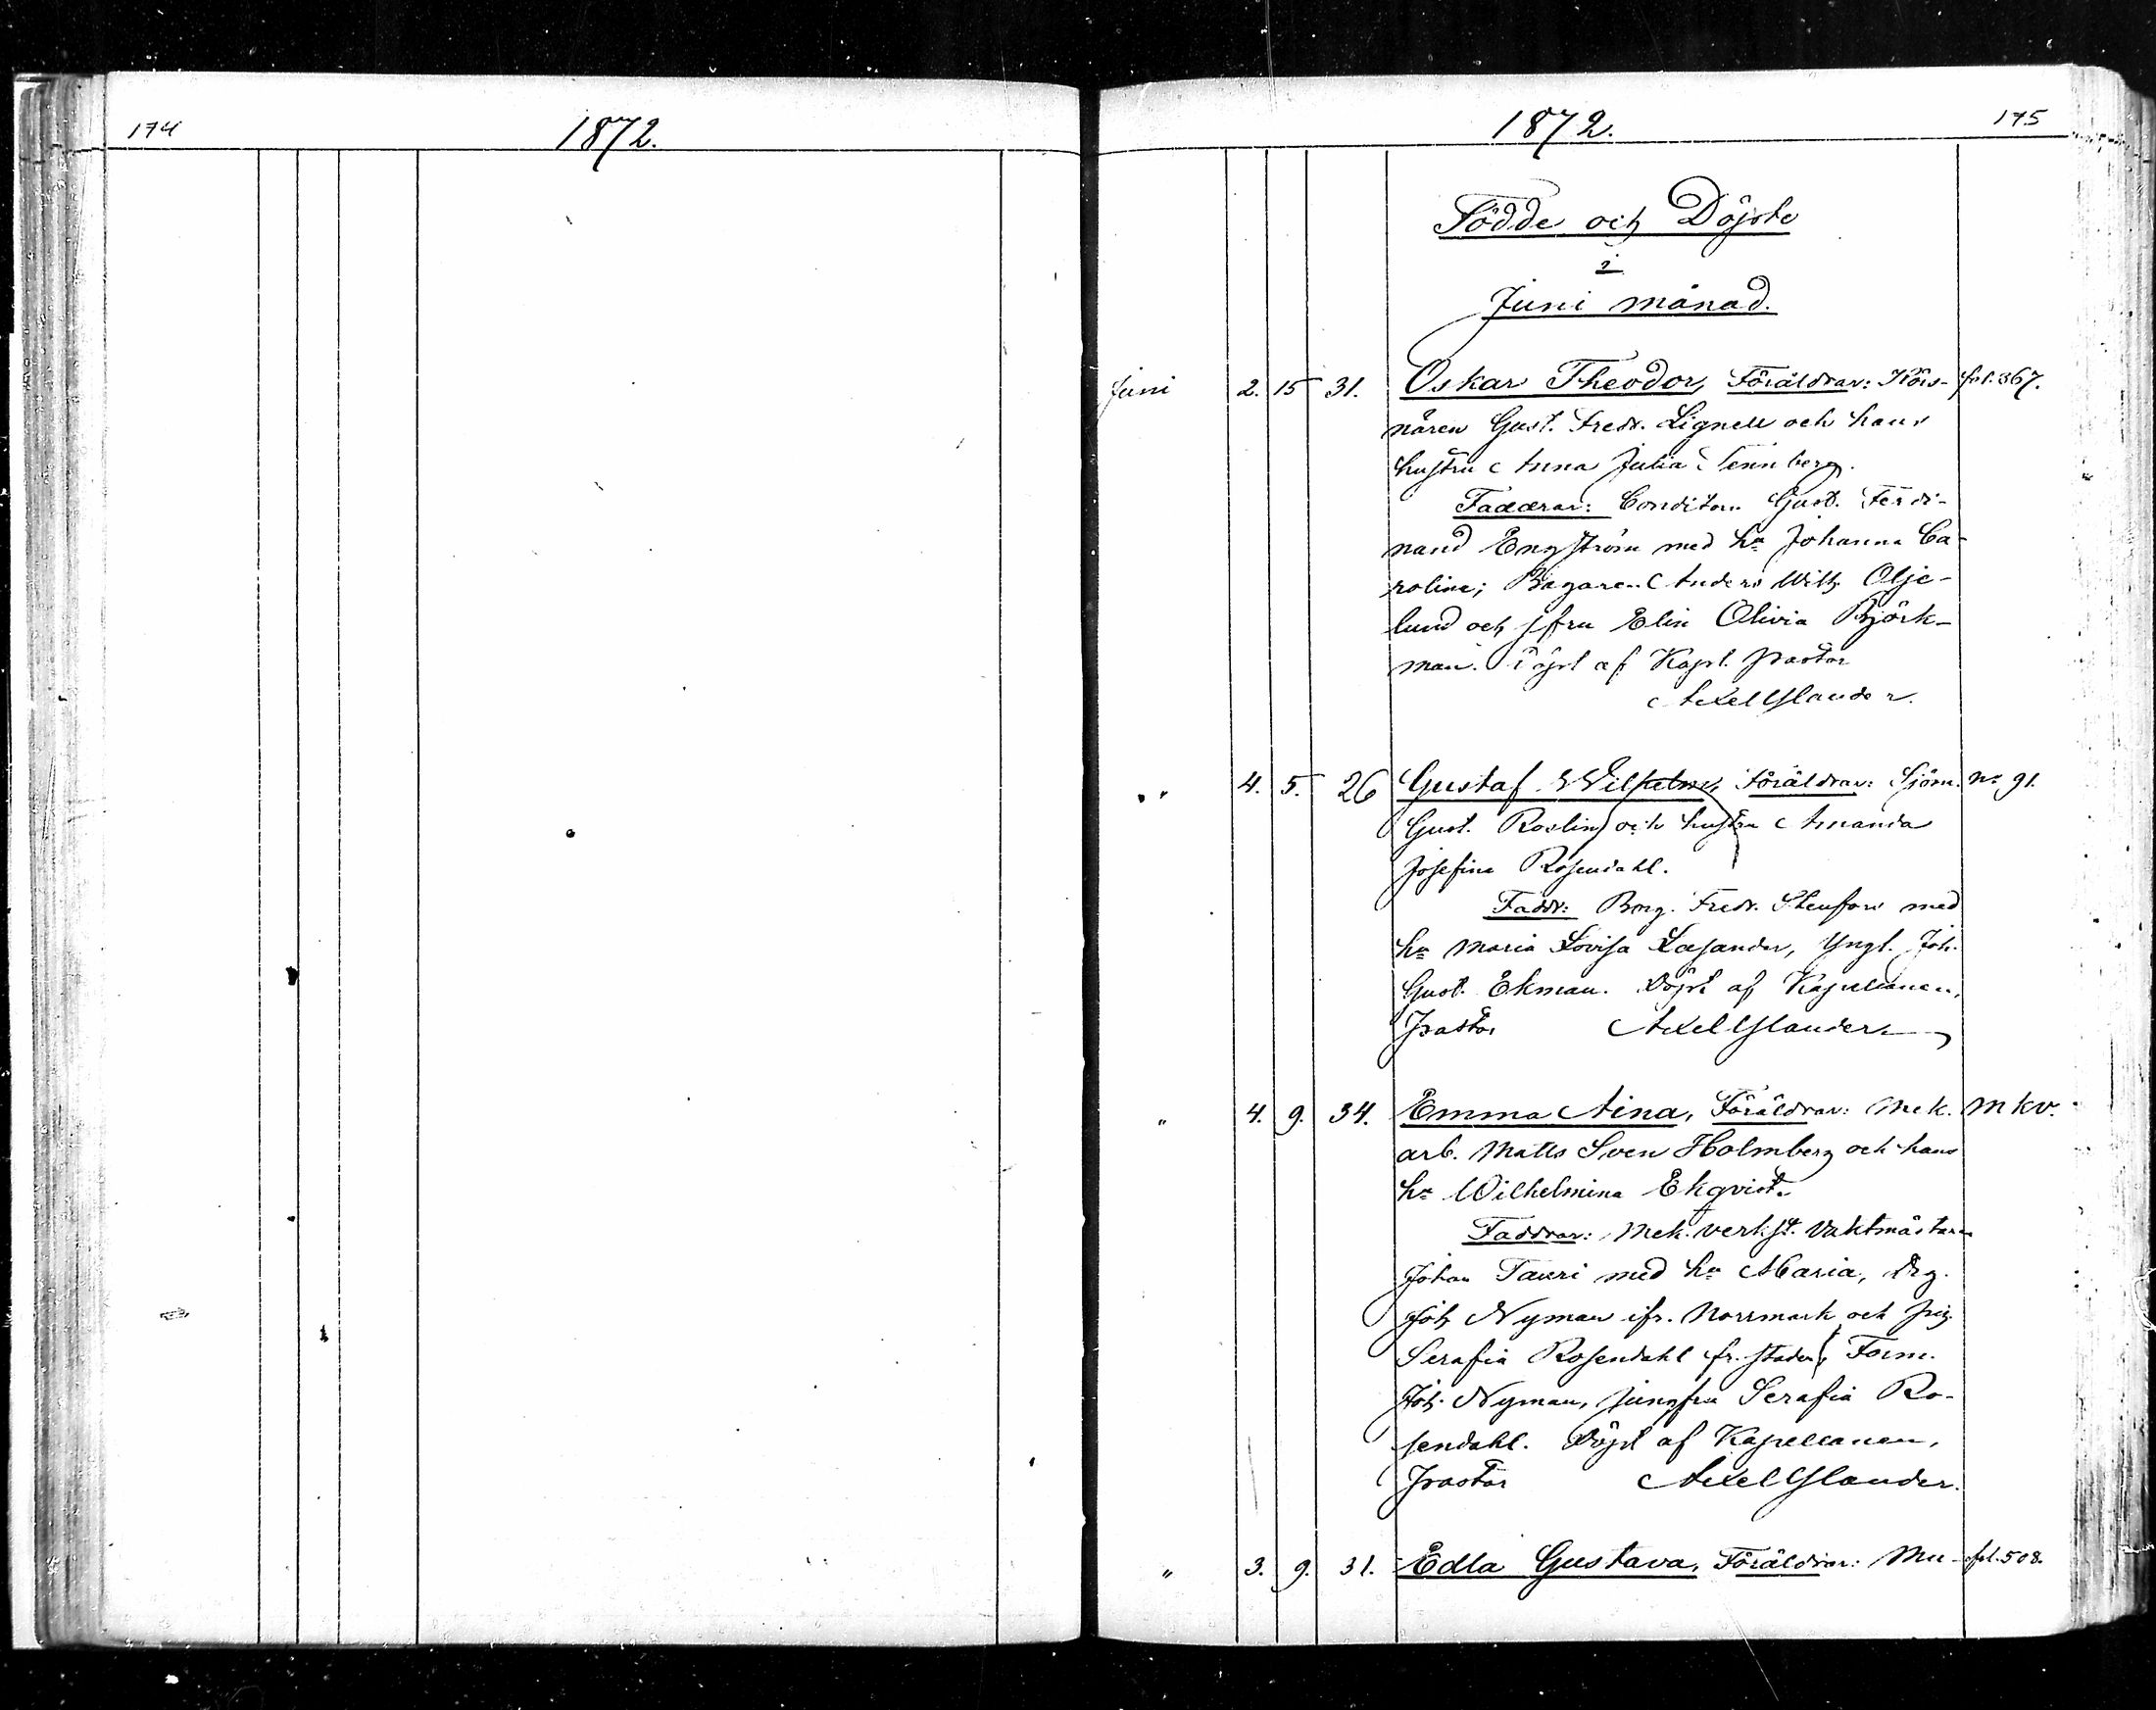 174
1872.
1872.
175
Födde och Döpte
i
Juni månad.
Juni 2. 15 31. Oskar Theodor, Föräldrar: Körs- fol. 367.
nären Gust. Fredr. Lignell och hans
hustru Anna Julia Tennberg.
Faddrar: Conditorn Gust. Ferdi-
nand Engström med hu Johanna Ca-
rolina; Bagaren Anders Wilh. Olje-
lund och jfru Elin Olivia Björk-
man. Döpt af Kapl. pastor
Axel Ylander.
" 4. 5. 26 Gustaf Wilhelm, Föräldrar: Sjöm. No 91.
Gust. Roslin och hustru Amanda
Josefina Rosendahl.
Faddr: Borg. Fredr. Stenfors med
hu Maria Lovisa Lasander, Yngl. Joh.
Gust. Ekman. Döpt af Kapellanen,
Pastor Axel Ylander
" 4. 9. 34. Emma Aina, Föräldrar: Mek. Mkv.
arb. Matts Sven Holmberg och hans
hu Wilhelmina Ekqvist.
Faddrar: Mek. verkst. Vaktmästaren
Johan Tauri med hu Maria, Drg.
Joh. Nyman ifr. Norrmark och pig.
Serafia Rosendahl fr. staden, Form.
Joh. Nyman, jungfru Serafia Ro-
sendahl. Döpt af Kapellanen,
Pastor Axel Ylander.
" 3. 9. 31. Edla Gustava, Föräldrar: Mu- fol. 508.